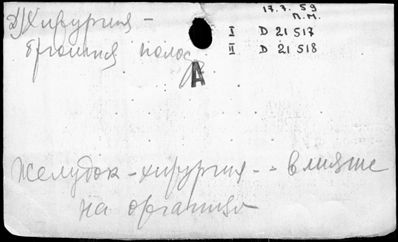 д) Хирургия -
брюшная полос
17.7.59
п.м.
I D 21 517
II D 21 518
А
Желудок - хирургия - - влияние
на организм